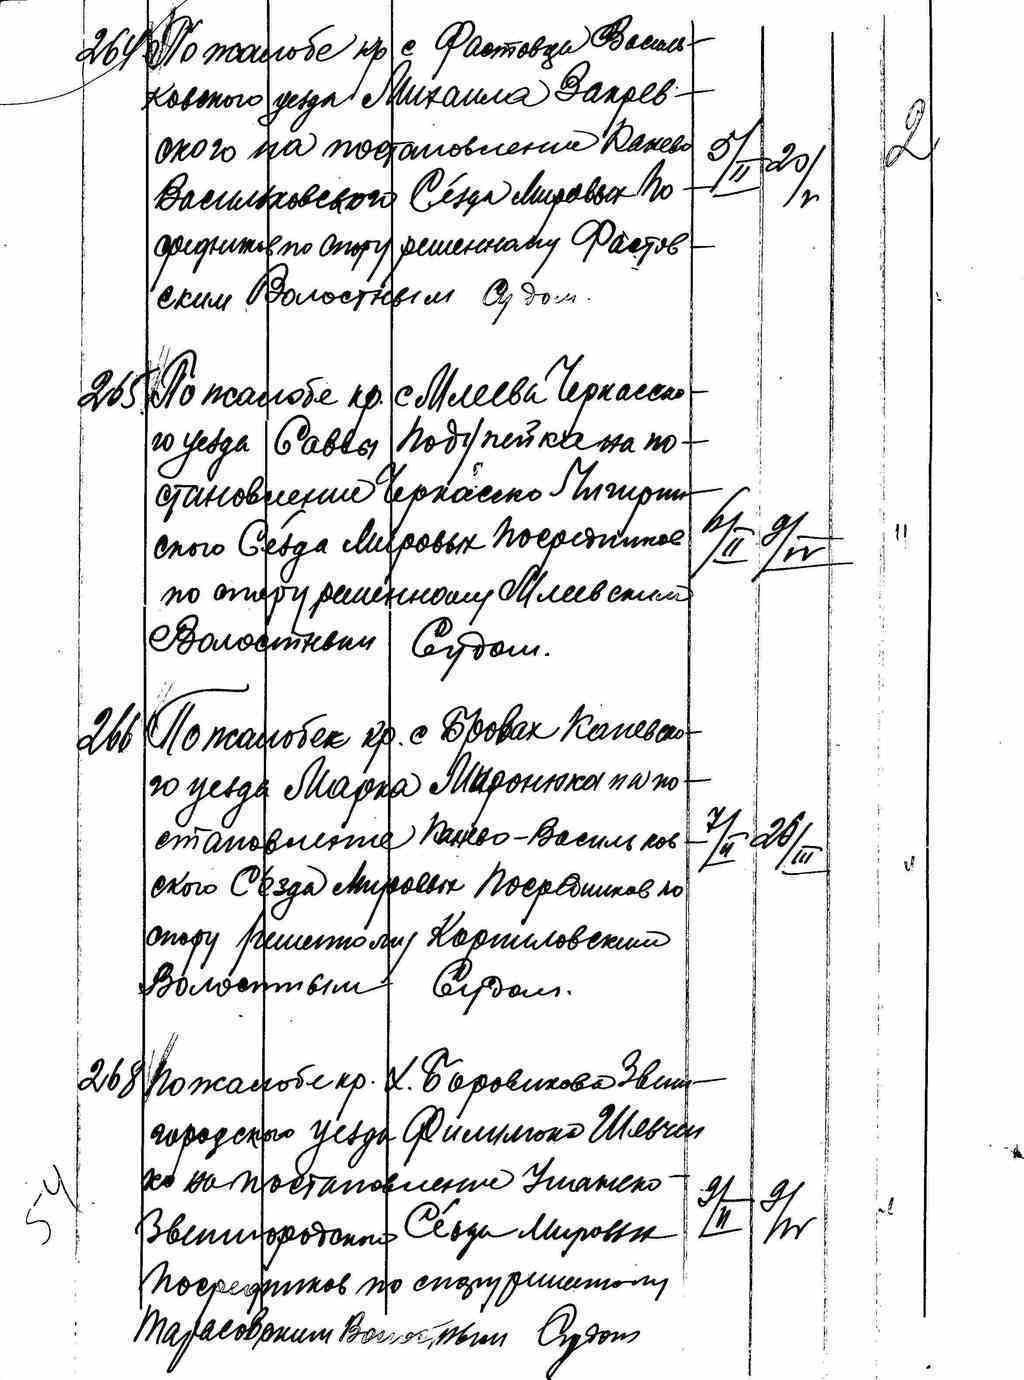 264. По жалобе кр с Фастовца Василь-
ковского уезда Михаила Закрев-
ского на постановление Канево
Васильковского Съезда Мировых По-
средников по спору решенному Фастов-
ским Волостным Судом.
5/II 20/
2
265. По жалобе кр. с Млеева Черкасско-
го уезда Саввы Подупейка на по-
становление Черкасско Чигирин-
ского Съезда Мировых Посредников
по спору решенному Млеевским
Волостным Судом.
6/II 9/IV "
266 По жалобе кр. с Бровах Каневско-
го уезда Марка Миронюка на по-
становление Канево-Васильков-
ского Съезда Мировых Посредников по
спору решенному Корниловским
Волостным Судом.
7/II 26/III "
268 По жалобе кр. х. Боровикова Звени-
городского уезда Филимона Шевчен
ко на постановление Уманско-
Звенигородского Съезда Мировых
Посредников по спору решенному
Тарасовским Волостным Судом
9/II 9/IV "
54